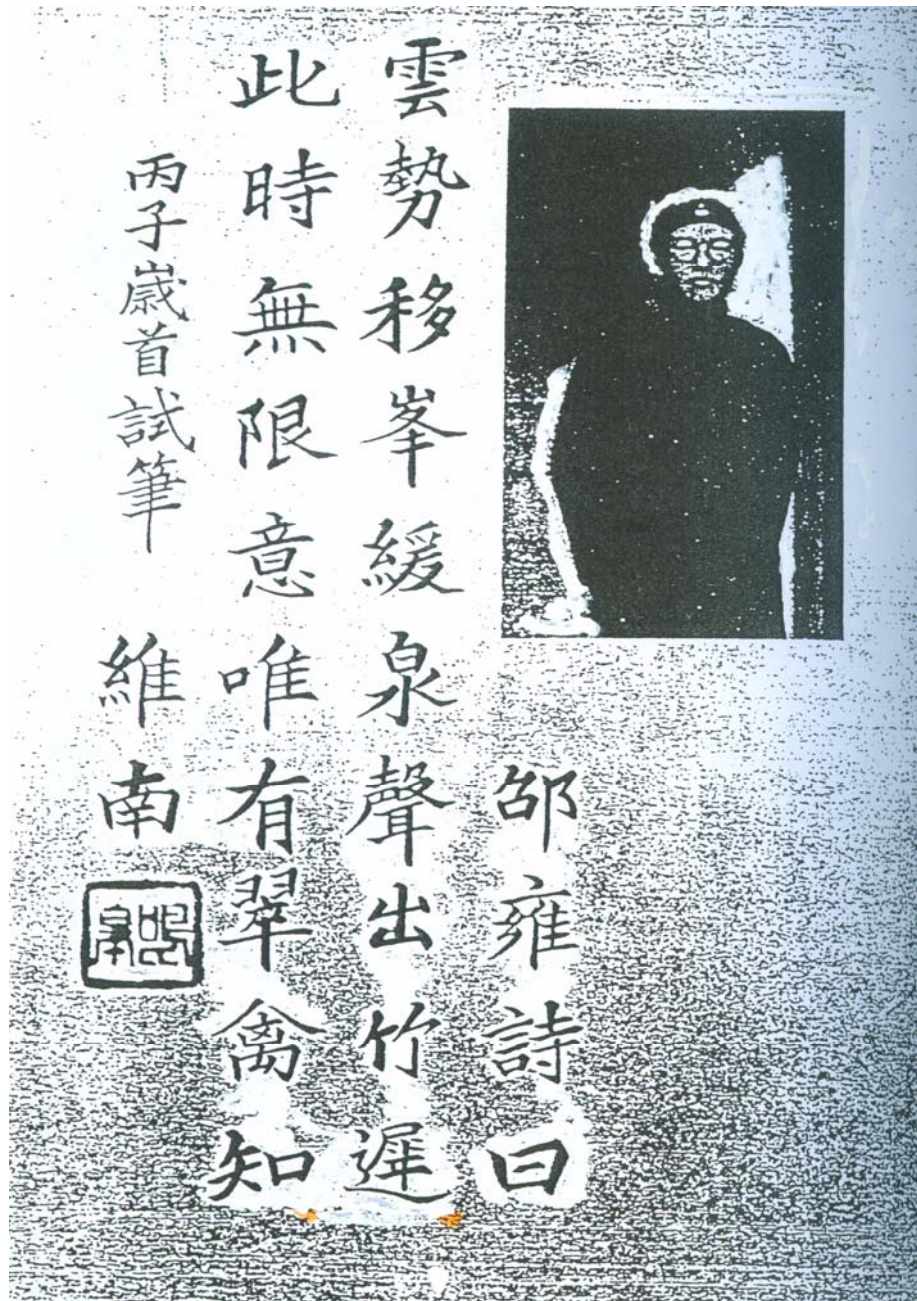 邵雍詩曰
雲勢移峯緩泉聲出竹遲
此時無限意唯有翠禽知
丙子歲首試筆 維南